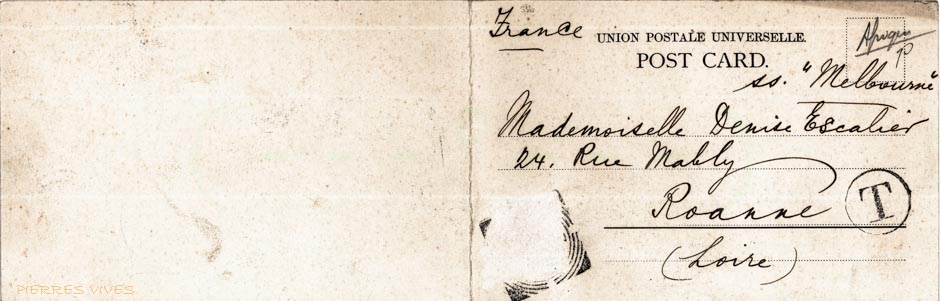 France
UNION POSTALE UNIVERSELLE.
POST CARD.
ss. "Melbourne"
Mademoiselle Denise Escalier
24. Rue Mably
Roanne
T
(Loire)
PIERRES VIVES